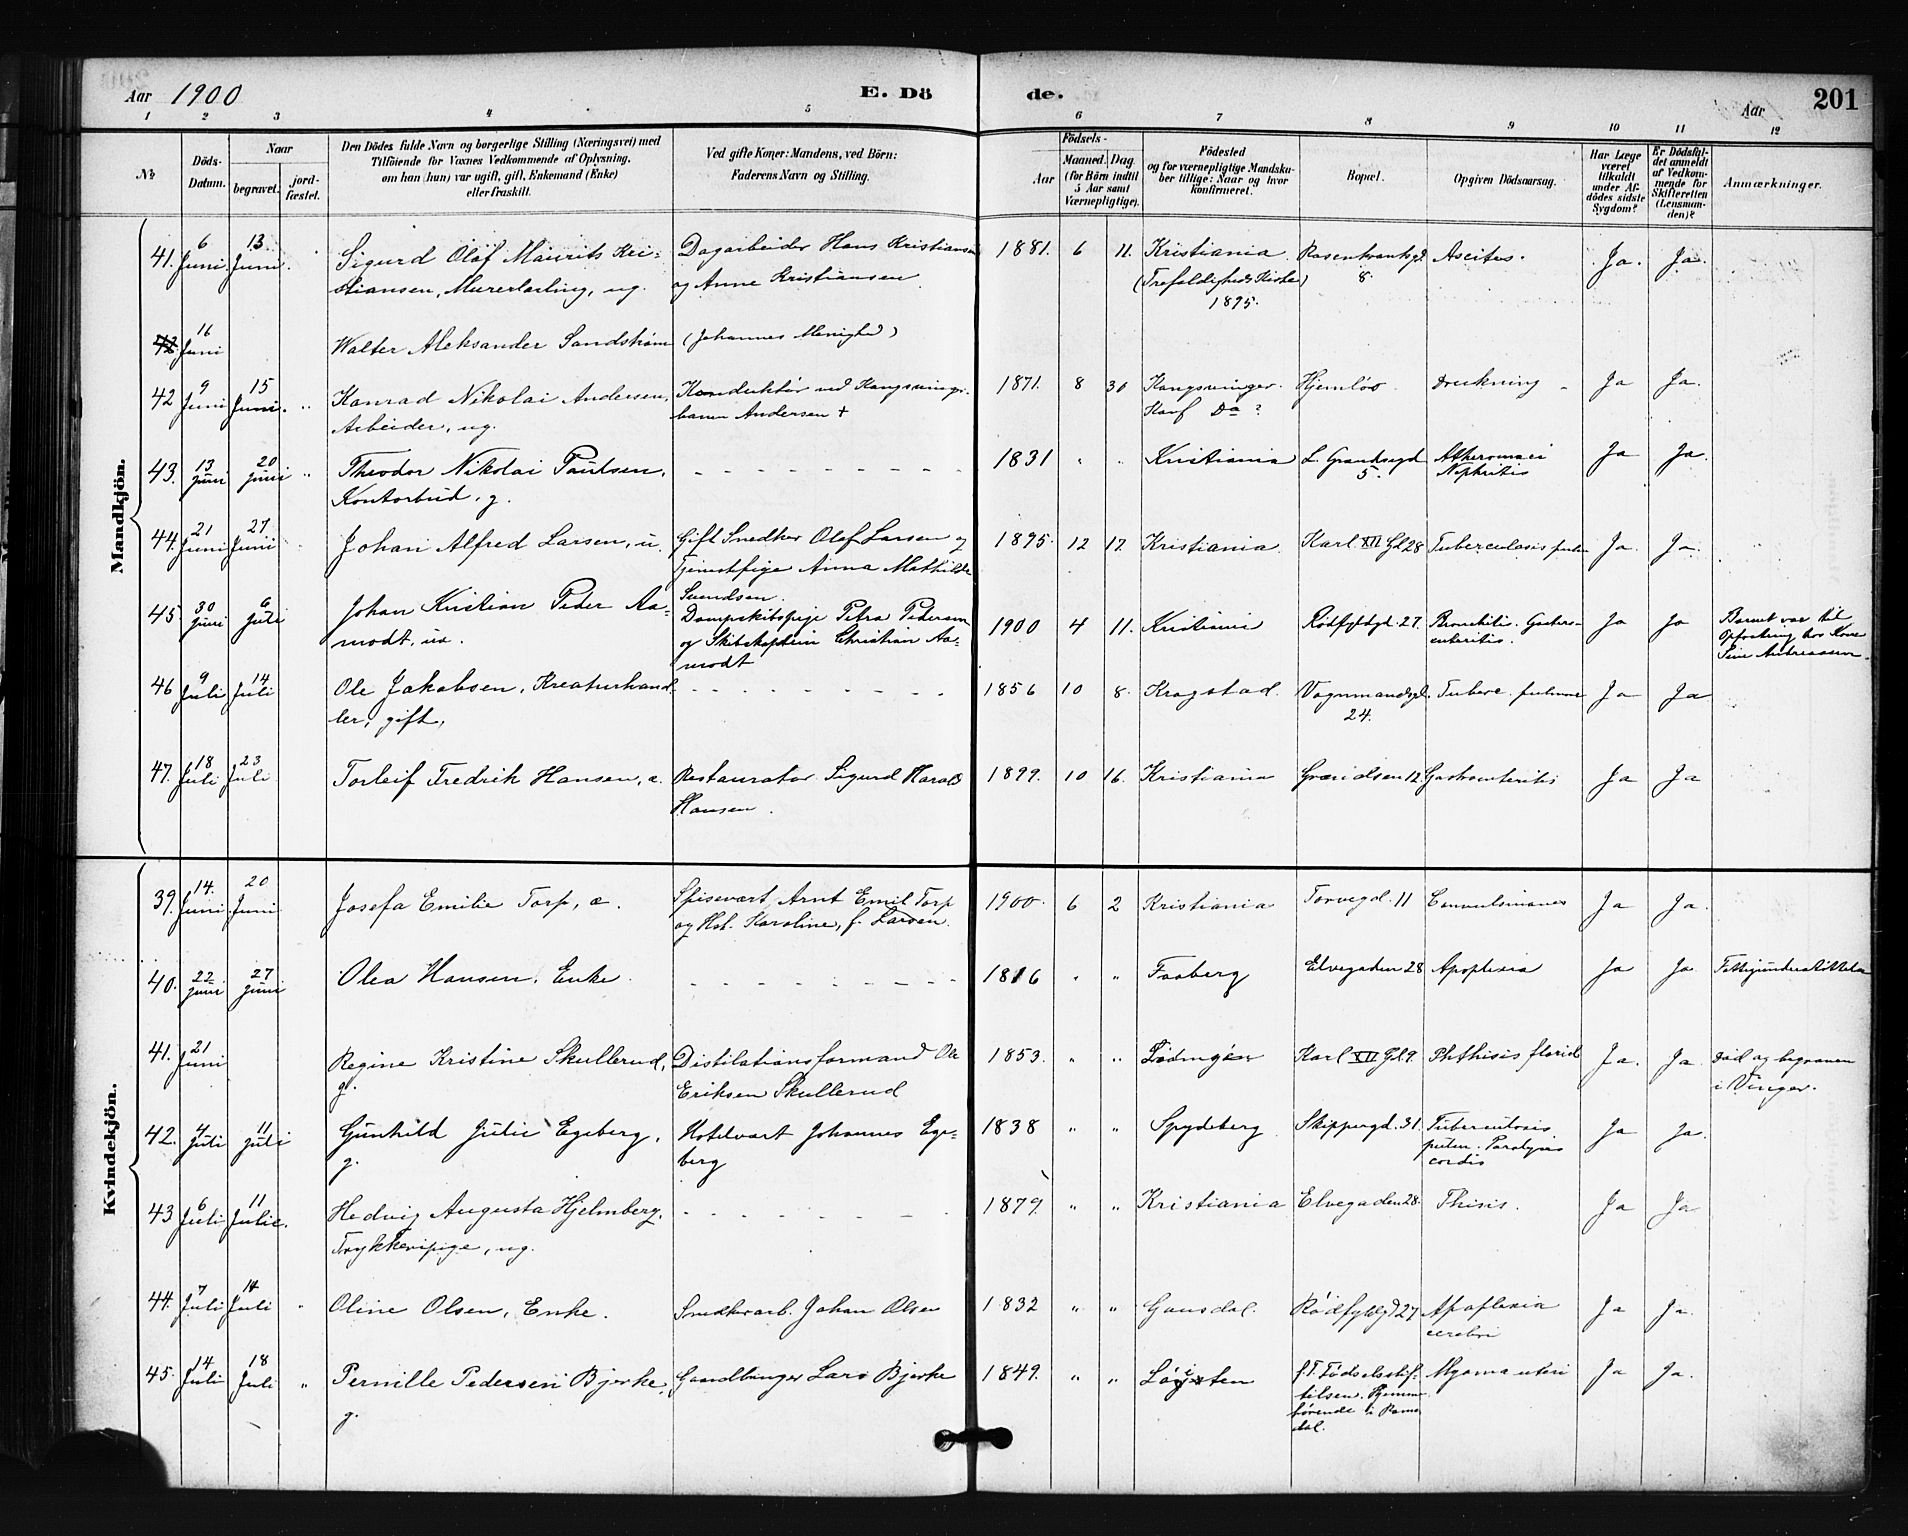 Aar 1900
E. Dö
de.
Aar
201
1 2 3 4 5 6 7 8 9 10 11 12
No
Döds-
Datum.
Naar
begravet.
jord-
fæstet.
Den Dödes fulde Navn og borgerlige Stilling (Næringsvei) med
Tilföiende for Voxnes Vedkommende af Oplysning,
om han (hun) var ugift, gift, Enkemand (Enke)
eller fraskilt.
Ved gifte Koner: Mandens, ved Börn:
Faderens Navn og Stilling.
Födsels-
Aar
Maaned. Dag
(for Börn indtil
5 Aar samt
Værnepligtige).
Födested
og for værnepligtige Mandsku-
ber tillige: Naar og hvor
konfirmeret.
Bopæl.
Opgiven Dödsaarsag.
Har Læge
været
tilkaldt
under Af-
dödes sidste
Sygdom?
Er Dödsfal-
det anmeldt
af Vedkom-
mende for
Skifteretten
(Lensman-
den)?
Anmærkninger.
Mandkjön.
41. 6 Juni 13 Juni. Sigurd Olaf Maurits Kri- Dagarbeider Hans Kristiansen 1881. 6 11. Kristiania Rosenkrantzgd. Ascites. Ja. Ja.
stiansen, Murerlærling, ug. og Anne Kristiansen (Trefoldigheds Kirke) 8
1895.
16 Juni Walter Aleksander Sandstrøm (Johannes Menighed)
42 9 Juni 15 Juni. " Konrad Nikolai Andersen, Konduktør ved Kongsvinger- 1871. 8 30 Kongsvinger. Hjemløs. Drukning Ja Ja.
Arbeider, ug. banen Andersen + Konf Do ?
43. 13 juni 20 juni " Theodor Nikolai Paulsen, 1831 " " Kristiania L. Grændsegd Atheromasi Ja Ja.
Kontorbud, g. 5. Nephritis
44. 21 Juni 27 Juni Johan Alfred Larsen, u. Gift Snedker Olaf Larsen og 1895. 12 17 Kristiania Karl XII Gd 28 Tuberculosis pulm Ja. Ja.
Tjenestpige Anna Mathilde
Svendsen.
45. 30 juni 6 juli Johan Kristian Peder Aa- Dampskibspige Petra Pedersen 1900 4 11. Kristiania Rødfyldgd. 27. Bronchitis. Gastro- Ja Ja Barnet var til
modt, ux. og Skibskaptein Christian Aa- enteritis. Opfostring hos Kone
modt
46 9 Juli 14 Juli Ole Jakobsen, Kreaturhand 1856 10 8. Kragstad. Vognmandsgd. Tuberc. pulmon Ja Ja
ler, gift. 24.
47. 18 Juli 23 Juli Torleif Fredrik Hansen, æ. Restauratør Sigurd Harald 1899. 10 16. Kristiania Grændsen 12. Gastroenteritis Ja Ja
Hansen.
Kvindekjön.
39. 14. Juni 20 Juni Josefa Emilie Torp, æ. Spisevært Arnt Emil Torp 1900. 6 2 Kristiania Torvegd. 11 Convulsiones Ja Ja.
og Hst. Karoline, f. Larsen.
40. 22 juni 27 juni Olea Hansen, Enke. 1816 " " Faaberg Elvegaden 28 Apoplexia Ja Ja. Fattigunderstøttelse
41. 21 Juni Regine Kristine Skullerud, Distilationsformand Ole 1853. " " Karl XII Gd. 9. Phthisis florid Ja. Ja. Död og begraven
g. Eriksen Skullerud i Vinger.
42. 4 Juli 11 juli Gunhild Julie Egeberg, Hotelvært Johannes Ege- 1838 " " Spydeberg Skippergd. 31. Tuberculosis Ja Ja.
g. berg pulm. Paralysis
cordis
43 6 Juli 11 Juli. Hedvig Augusta Hjelmberg, 1879. " " Kristiania Elvegaden 28. Thisis. Ja Ja
Trykkeripige, ug.
44. 7 Juli 14 Juli " Oline Olsen, Enke. Snedkerarb. Johan Olsen 1832 " " Gausdal. Rødfyldgd 27 Apoplexia Ja Ja.
cerebri
45. 14 Juli 18 Juli " Pernille Pedersen Bjerke, Gaardbruger Lars Bjerke 1849. " " Løiten f.T. Fødselsstif- Myoma uteri Ja Ja.
g. telsen. Hjemme-
hørende i Roms-
dal.